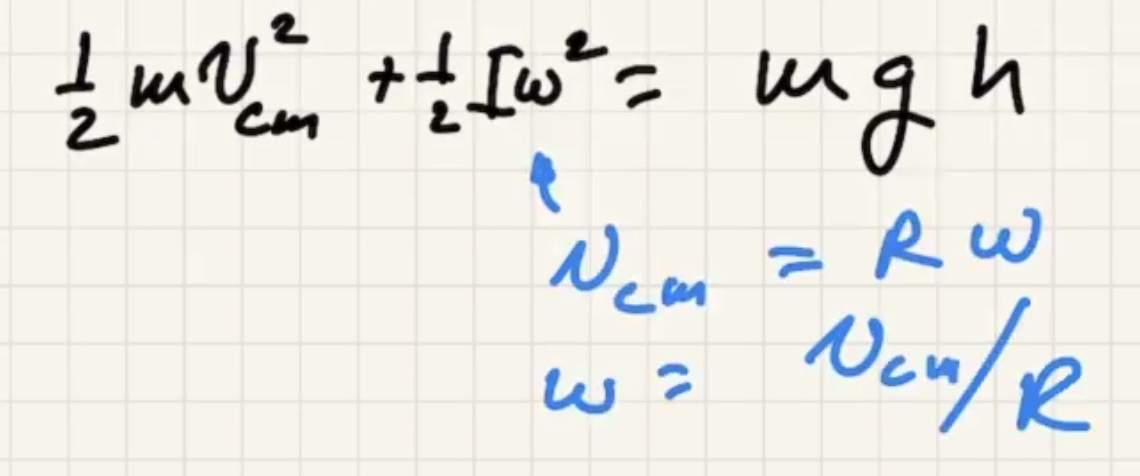 ½ mv²cm + ½ Iω² = mgh
vcm = Rω
ω = vcm/R